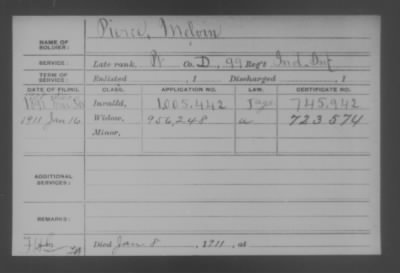 NAME OF SOLDIER: Pierce, Melvin
SERVICE: Late rank, Co. D, 99 Reg't Ind. Inf.
TERM OF SERVICE: Enlisted , 1 Discharged , 1
DATE OF FILING. CLASS. APPLICATION NO. LAW. CERTIFICATE NO.
1891 Invalid, 1,005,442 745,942
1911 Jan 16 Widow, 956,248 a 723574
Minor,
ADDITIONAL SERVICES:
REMARKS:
Died Jan 8, 1911, at